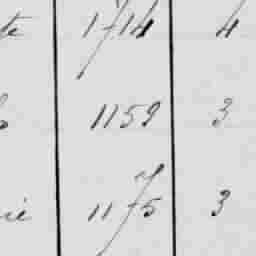 te 1714 4
1159 3
rie 1175 3